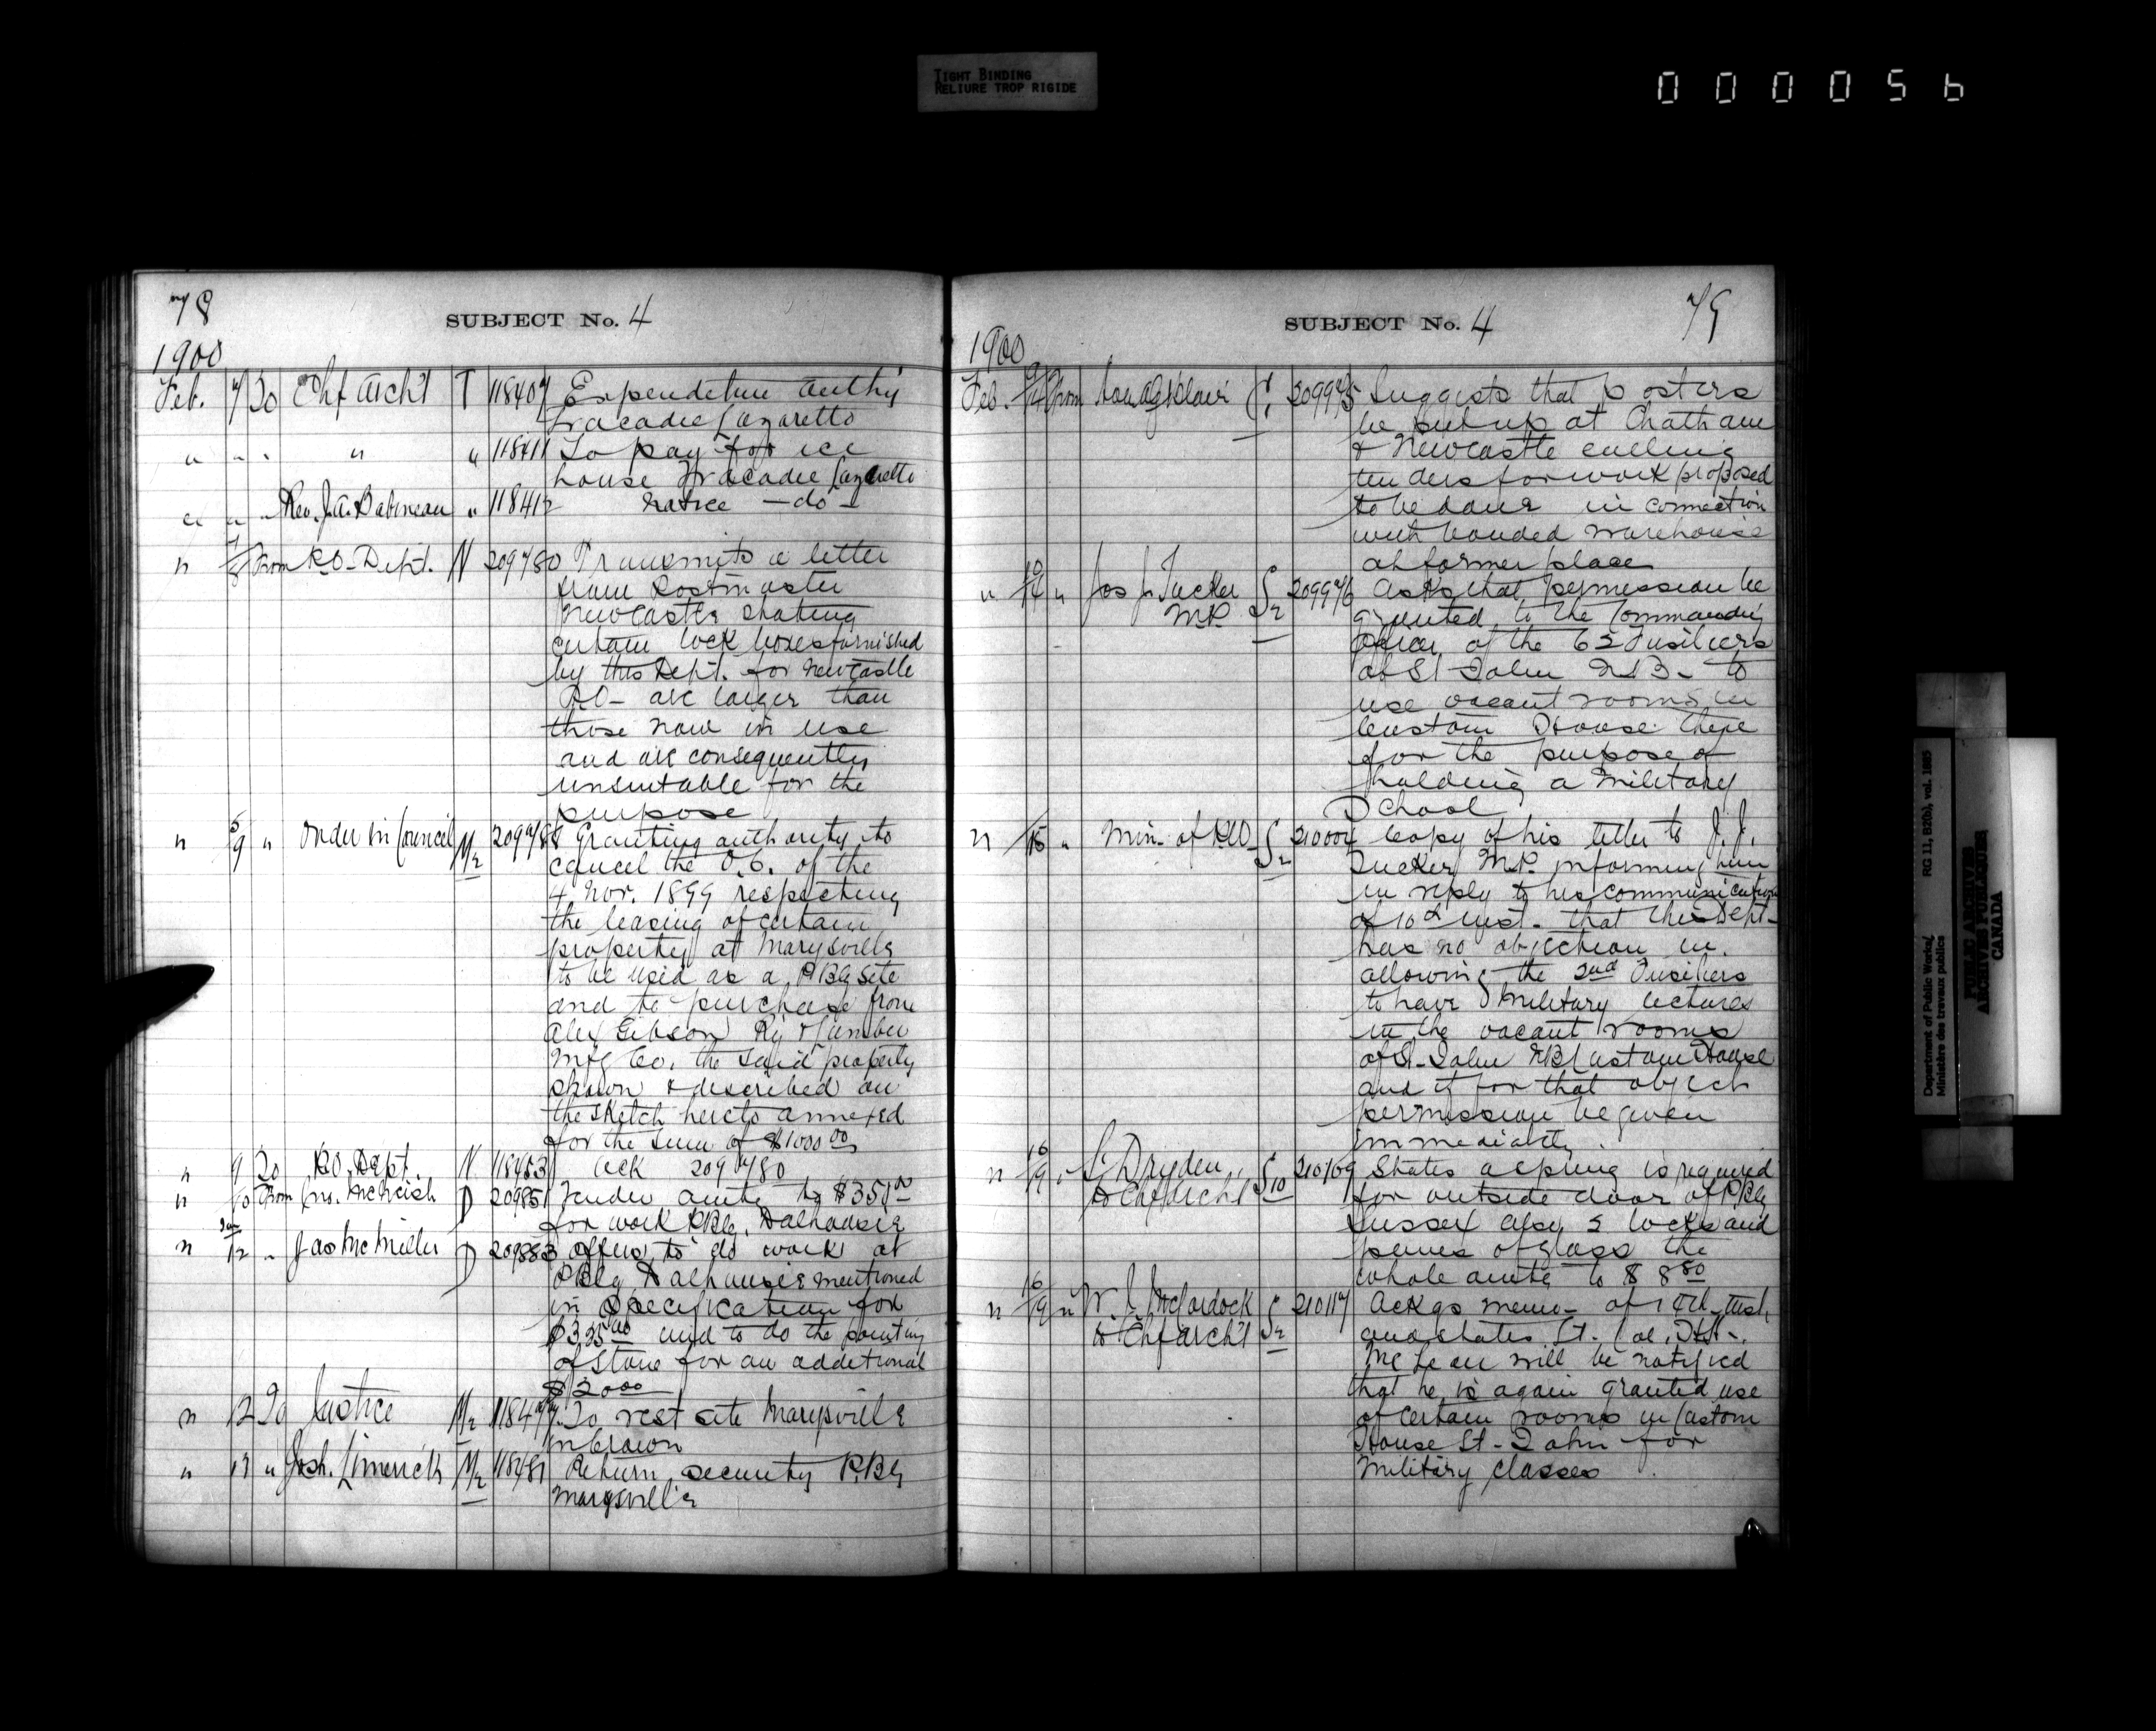 TIGHT BINDING
RELIURE TROP RIGIDE
000056
78
SUBJECT No. 4
1900
Feb. 7 To Chf Arch't T 118407 Expenditure authy
Tracadie Lazaretto
" " " " " 118411 To pay for ice
house Tracadie Lazaretto
" " " Rev. J.A. Babineau " 118412 notice - do -
" 7/8 From P.O. Dept. N 209780 Transmits a letter
from Postmaster
Newcastle stating
certain lock boxes furnished
by this Dept. for Newcastle
P.O. are larger than
those now in use
and are consequently
unsuitable for the
purpose
" 5/9 " Order in Council M2 209788 Granting authority to
cancel the O.C. of the
4 Nov. 1899 respecting
the leasing of certain
property at Marysville
to be used as a P.Bg site
and to purchase from
Alex Gibson Ry & Lumber
Mfg Co. the said property
shown & described on
the sketch hereto annexed
for the sum of $1000 00
" 9 To P.O. Dept. N 118453 Ack 209780
" 10 From McNeish D 209851 Tender amtg to $351 00
for work P.Bg. Dalhousie
" 12 " Jas McMiller D 209883 Offers to do work at
P.Bdg Dalhousie mentioned
in specification for
$325 00 and to do the pointing
of stone for an additional
$20 00
" 12 To Justice M2 118477 To vest site Marysville
in Crown
" 13 " Josh. Limerick M2 118481 Return security P.Bg
Marysville
SUBJECT No. 4
79
1900
Feb. 9/14 From Hon A G Blair 209975 Suggests that posters
be put up at Chatham
& Newcastle calling
tenders for work proposed
to be done in connection
with bonded warehouse
at former place
" 10/14 " Jos J. Tucker S2 209976 Asks that permission be
M.P. granted to the Commanding
Officer of the 62 Fusiliers
at St John N.B. to
use vacant rooms in
Custom House there
for the purpose of
holding a Military
School
" 15 " Min. of P.W. S2 210004 Copy of his letter to J.J.
Tucker M.P. informing him
in reply to his communication
of 10th inst. that this Dept.
has no objection in
allowing the 2nd Fusiliers
to have Military lectures
in the vacant rooms
of St. John N.B. Custom House
and if for that object
permission be given
immediately.
" 16/19 " S. Dryden S10 210109 States a spring is required
to Chf Arch't for outside door of P.Bg
Sussex also 2 locks and
panes of glass the
whole amtg to $8 80
" 16/19 " W. J. McCordock S2 210117 Ackgs memo. of 14th inst,
to Chf Arch't and states Lt. Col. H.H.
McLean will be notified
that he is again granted use
of certain rooms in Custom
House St. John for
Military classes.
Department of Public Works/ RG 11, B2(b), vol. 1885
Ministère des travaux publics
PUBLIC ARCHIVES
ARCHIVES PUBLIQUES
CANADA